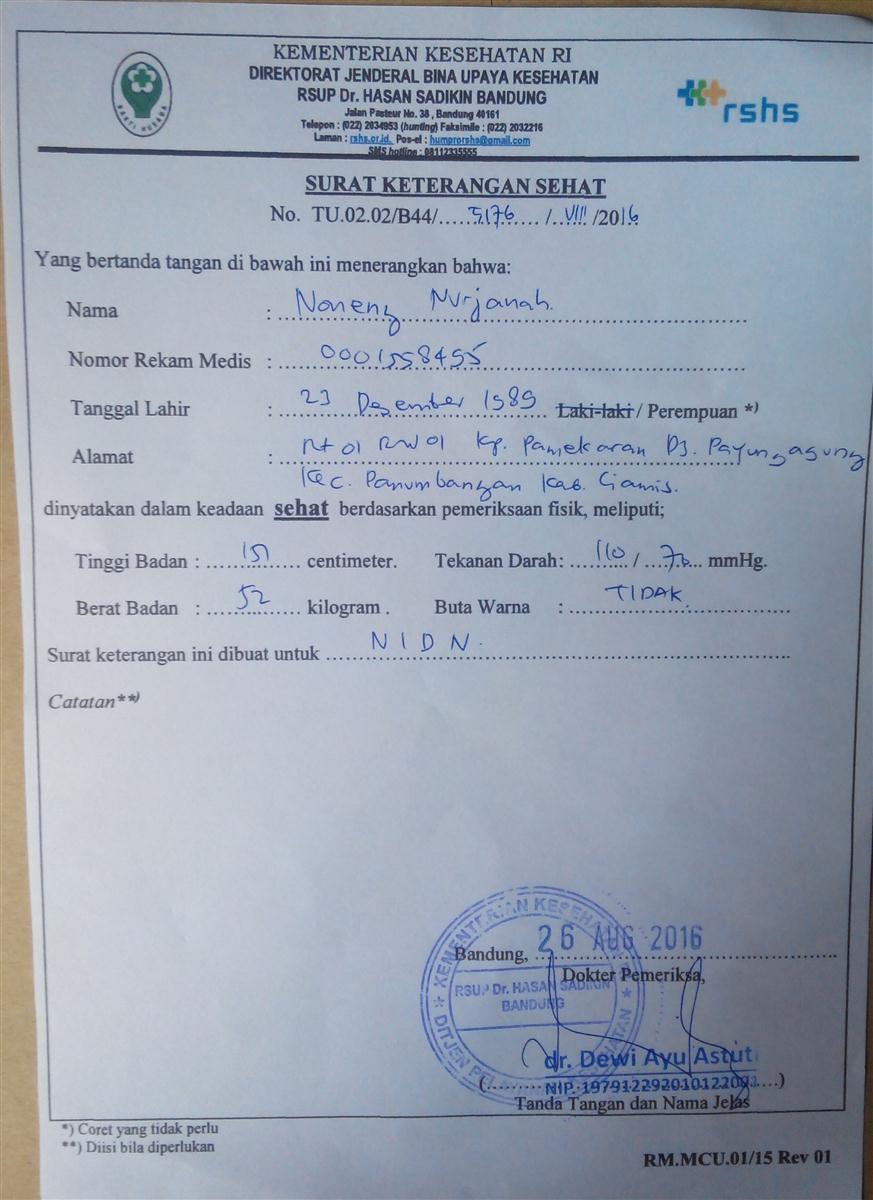 KEMENTERIAN KESEHATAN RI
DIREKTORAT JENDERAL BINA UPAYA KESEHATAN
RSUP Dr. HASAN SADIKIN BANDUNG
Jalan Pasteur No. 38 , Bandung 40161
Telepon : (022) 2034953 (hunting) Faksimile : (022) 2032216
Laman : rshs.or.id, Pos-el : humprorshs@gmail.com
SMS hotline : 08112335555
BAKTI HUSADA
rshs
SURAT KETERANGAN SEHAT
No. TU.02.02/B44/.....5176...../..VIII./2016
Yang bertanda tangan di bawah ini menerangkan bahwa:
Nama : Noneng Nurjanah.
Nomor Rekam Medis : 0001558455
Tanggal Lahir : 23 Desember 1989 Laki-laki / Perempuan *)
Alamat : Rt 01 RW 01 Kp. Pamekaran Ds. Payungagung
Kec. Panumbangan Kab. Ciamis.
dinyatakan dalam keadaan sehat berdasarkan pemeriksaan fisik, meliputi;
Tinggi Badan : 151 centimeter. Tekanan Darah: 110 / 70 mmHg.
Berat Badan : 52 kilogram . Buta Warna : TIDAK
Surat keterangan ini dibuat untuk NIDN.
Catatan**)
Bandung, 26 AUG 2016
Dokter Pemeriksa,
KEMENTERIAN KESEHATAN
RSUP Dr. HASAN SADIKIN
BANDUNG
dr. Dewi Ayu Astuti
(......NIP. 19791229201012200......)
Tanda Tangan dan Nama Jelas
*) Coret yang tidak perlu
**) Diisi bila diperlukan
RM.MCU.01/15 Rev 01